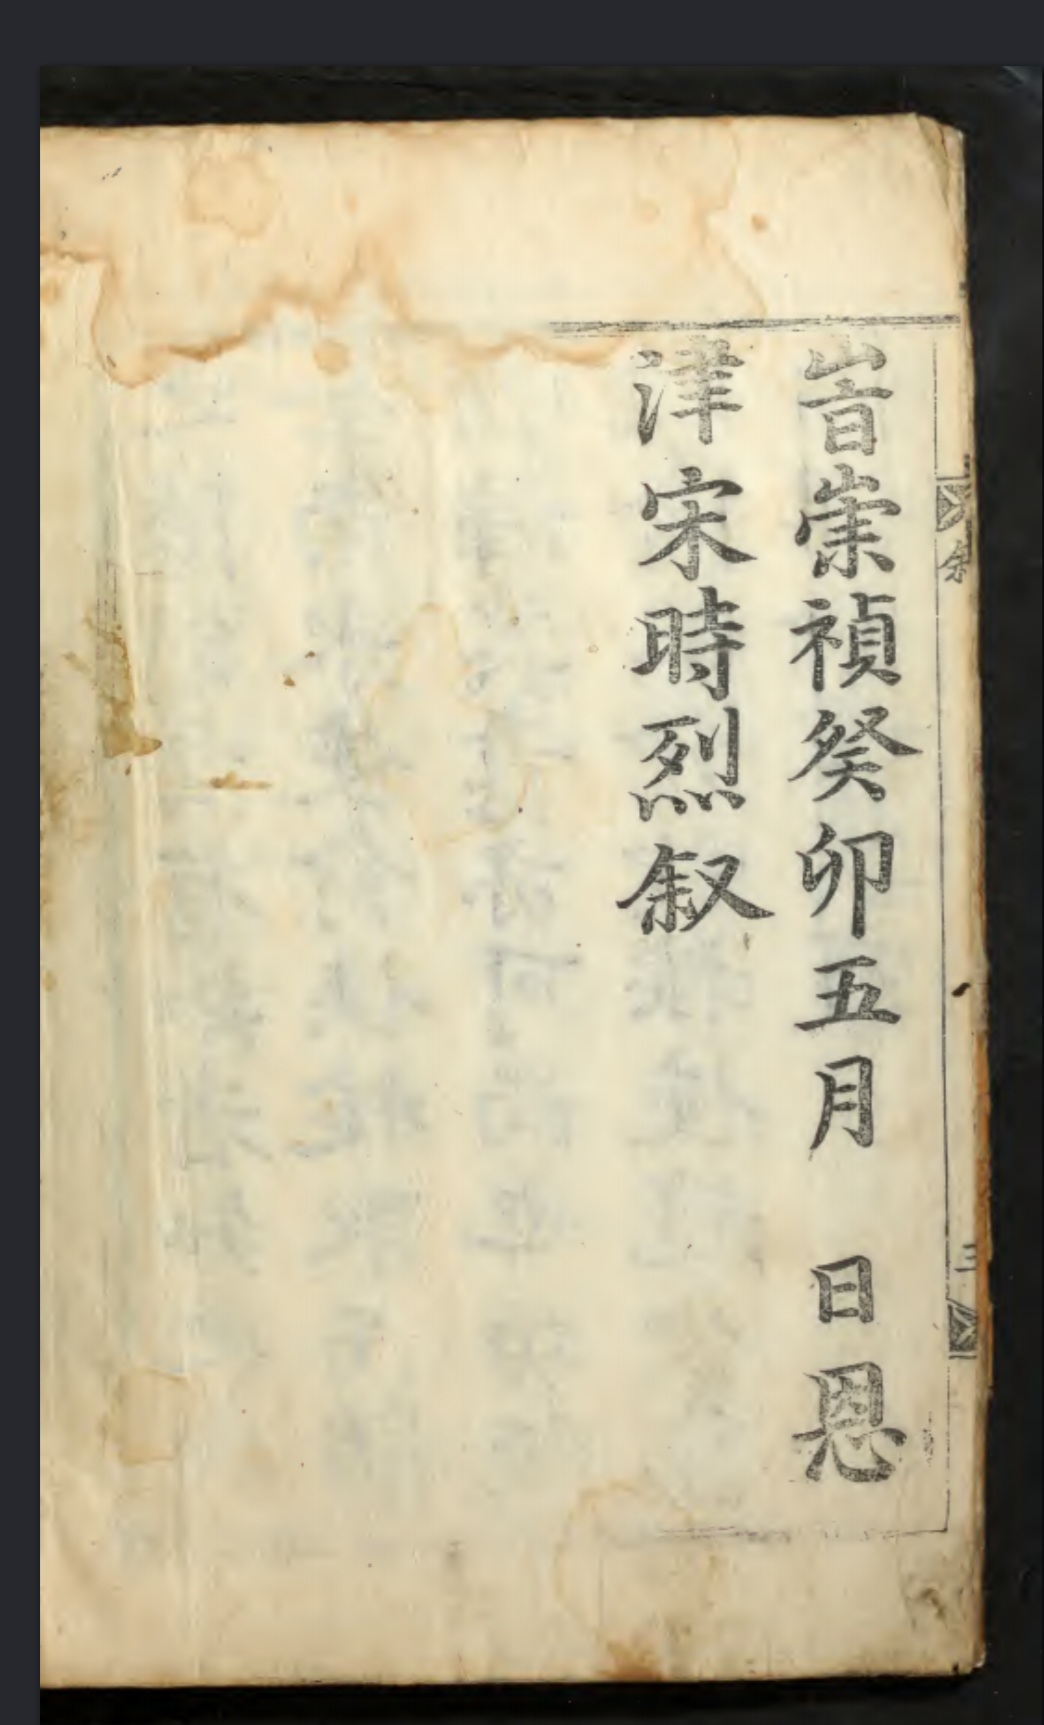 旹崇禎癸卯五月　日恩
津宋時烈叙